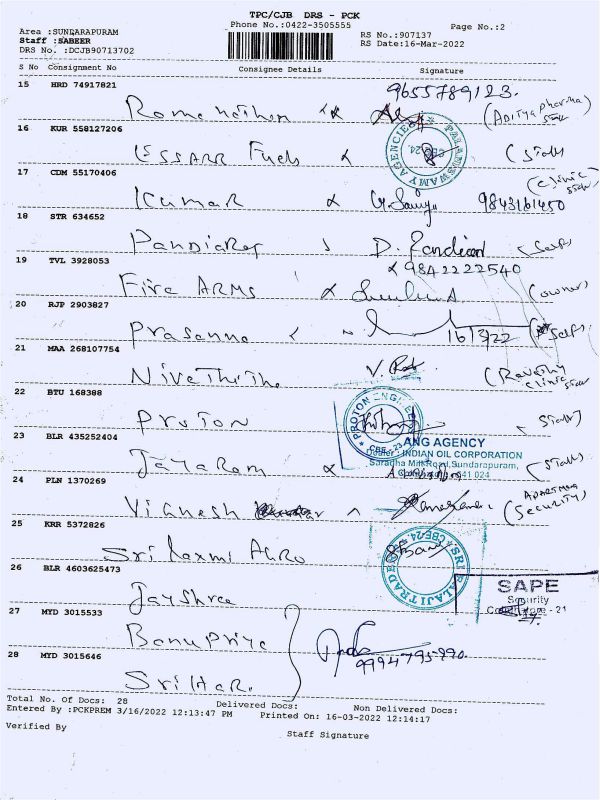 TPC/CJB DRS - PCK
Phone No.:0422-3505555
Page No.:2
Area :SUNDARAPURAM
Staff :SABEER
DRS No. :DCJB90713702
RS No.:907137
RS Date:16-Mar-2022
S No Consignment No Consignee Details Signature
15 HRD 74917821 9655789123.
Ramanathan (Aditya pharma staff
16 KUR 558127206
ESSARR Fuels (Staff
PALANISWAMY AGENCIES CBE-24
17 CDM 55170406 (Clinic staff)
Kumar 9843161450
18 STR 634652
Pandiaraj D. Pandian (Self)
19 TVL 3928053 9842222540
Fire ARMS (owner)
20 RJP 2903827
Prasanna 16/3/22 (Self)
21 MAA 268107754
Nivethitha V. (Revathy Clinic staff
22 BTU 168388
Proton (Staff)
PROTON ENGINEE CBE-23
23 BLR 435252404
ANG AGENCY
Dealer: INDIAN OIL CORPORATION
Saradha Mill Road, Sundarapuram,
641 024
Jayaram (Staff)
24 PLN 1370269
Vignesh (Apartment Security)
25 KRR 5372826
Sri Laxmi Agro
SRI BALAJI TRADE CBE-24
26 BLR 4603625473
Jayshree
SAPE
Security
Coimbatore - 21
27 MYD 3015533
Banupriya
9994795990.
28 MYD 3015646
Sri Hari
Total No. Of Docs: 28 Delivered Docs: Non Delivered Docs:
Entered By :PCKPREM 3/16/2022 12:13:47 PM Printed On: 16-03-2022 12:14:17
Verified By
Staff Signature